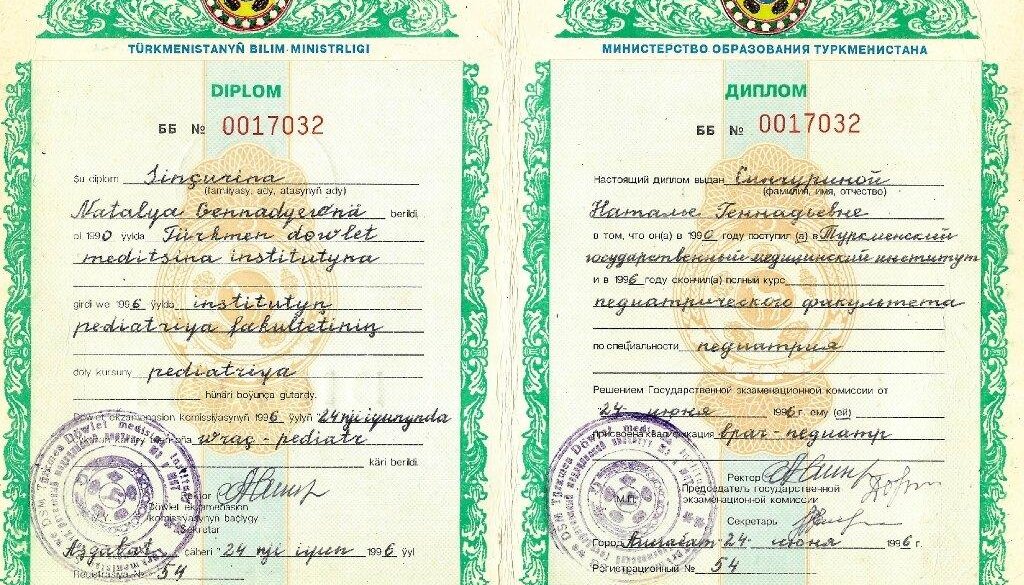 TÜRKMENISTANYŇ BILIM MINISTRLIGI
DIPLOM
ББ № 0017032
Şu diplom Sinçurina
(familiýasy, ady, atasynyň ady)
Natalya Gennadyevnä berildi.
ol 1990 ýylda Türkmen döwlet
meditsina institutyna
girdi we 1996 ýylda institutyň
pediatriya fakultetiniň
doly kursuny pediatriya
hünäri boýunça gutardy.
Döwlet ekzamenasion komissiýasynyň 1996 ýylyň 24 nji iýunynda
wraç-pediatr
käri berildi.
Rektor
Döwlet ekzamenasion
komissiýasynyň başlygy
Sekretar
Aşgabat şäheri 24 nji iyun 1996 ýyl
Registrasiýa № 54
МИНИСТЕРСТВО ОБРАЗОВАНИЯ ТУРКМЕНИСТАНА
ДИПЛОМ
ББ № 0017032
Настоящий диплом выдан Синчуриной
(фамилия, имя, отчество)
Наталье Геннадьевне
в том, что он(а) в 1990 году поступил (а) в Туркменский
государственный медицинский институт
и в 1996 году скончил(а) полный курс
педиатрического факультета
по специальности педиатрия
Решением Государственной экзаменационной комиссии от
24 июня 1996 г. ему (ей)
присвоена квалификация врач-педиатр
Ректор
Председатель государственной
экзаменационной комиссии
М.П.
Секретарь
Город Ашгабат 24 июня 1996 г.
Регистрационный № 54